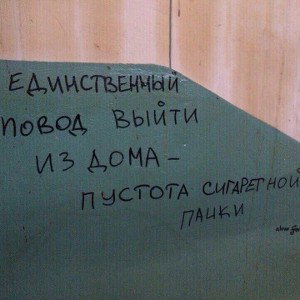 ЕДИНСТВЕННЫЙ
ПОВОД ВЫЙТИ
ИЗ ДОМА —
ПУСТОТА СИГАРЕТНОЙ
ПАЧКИ